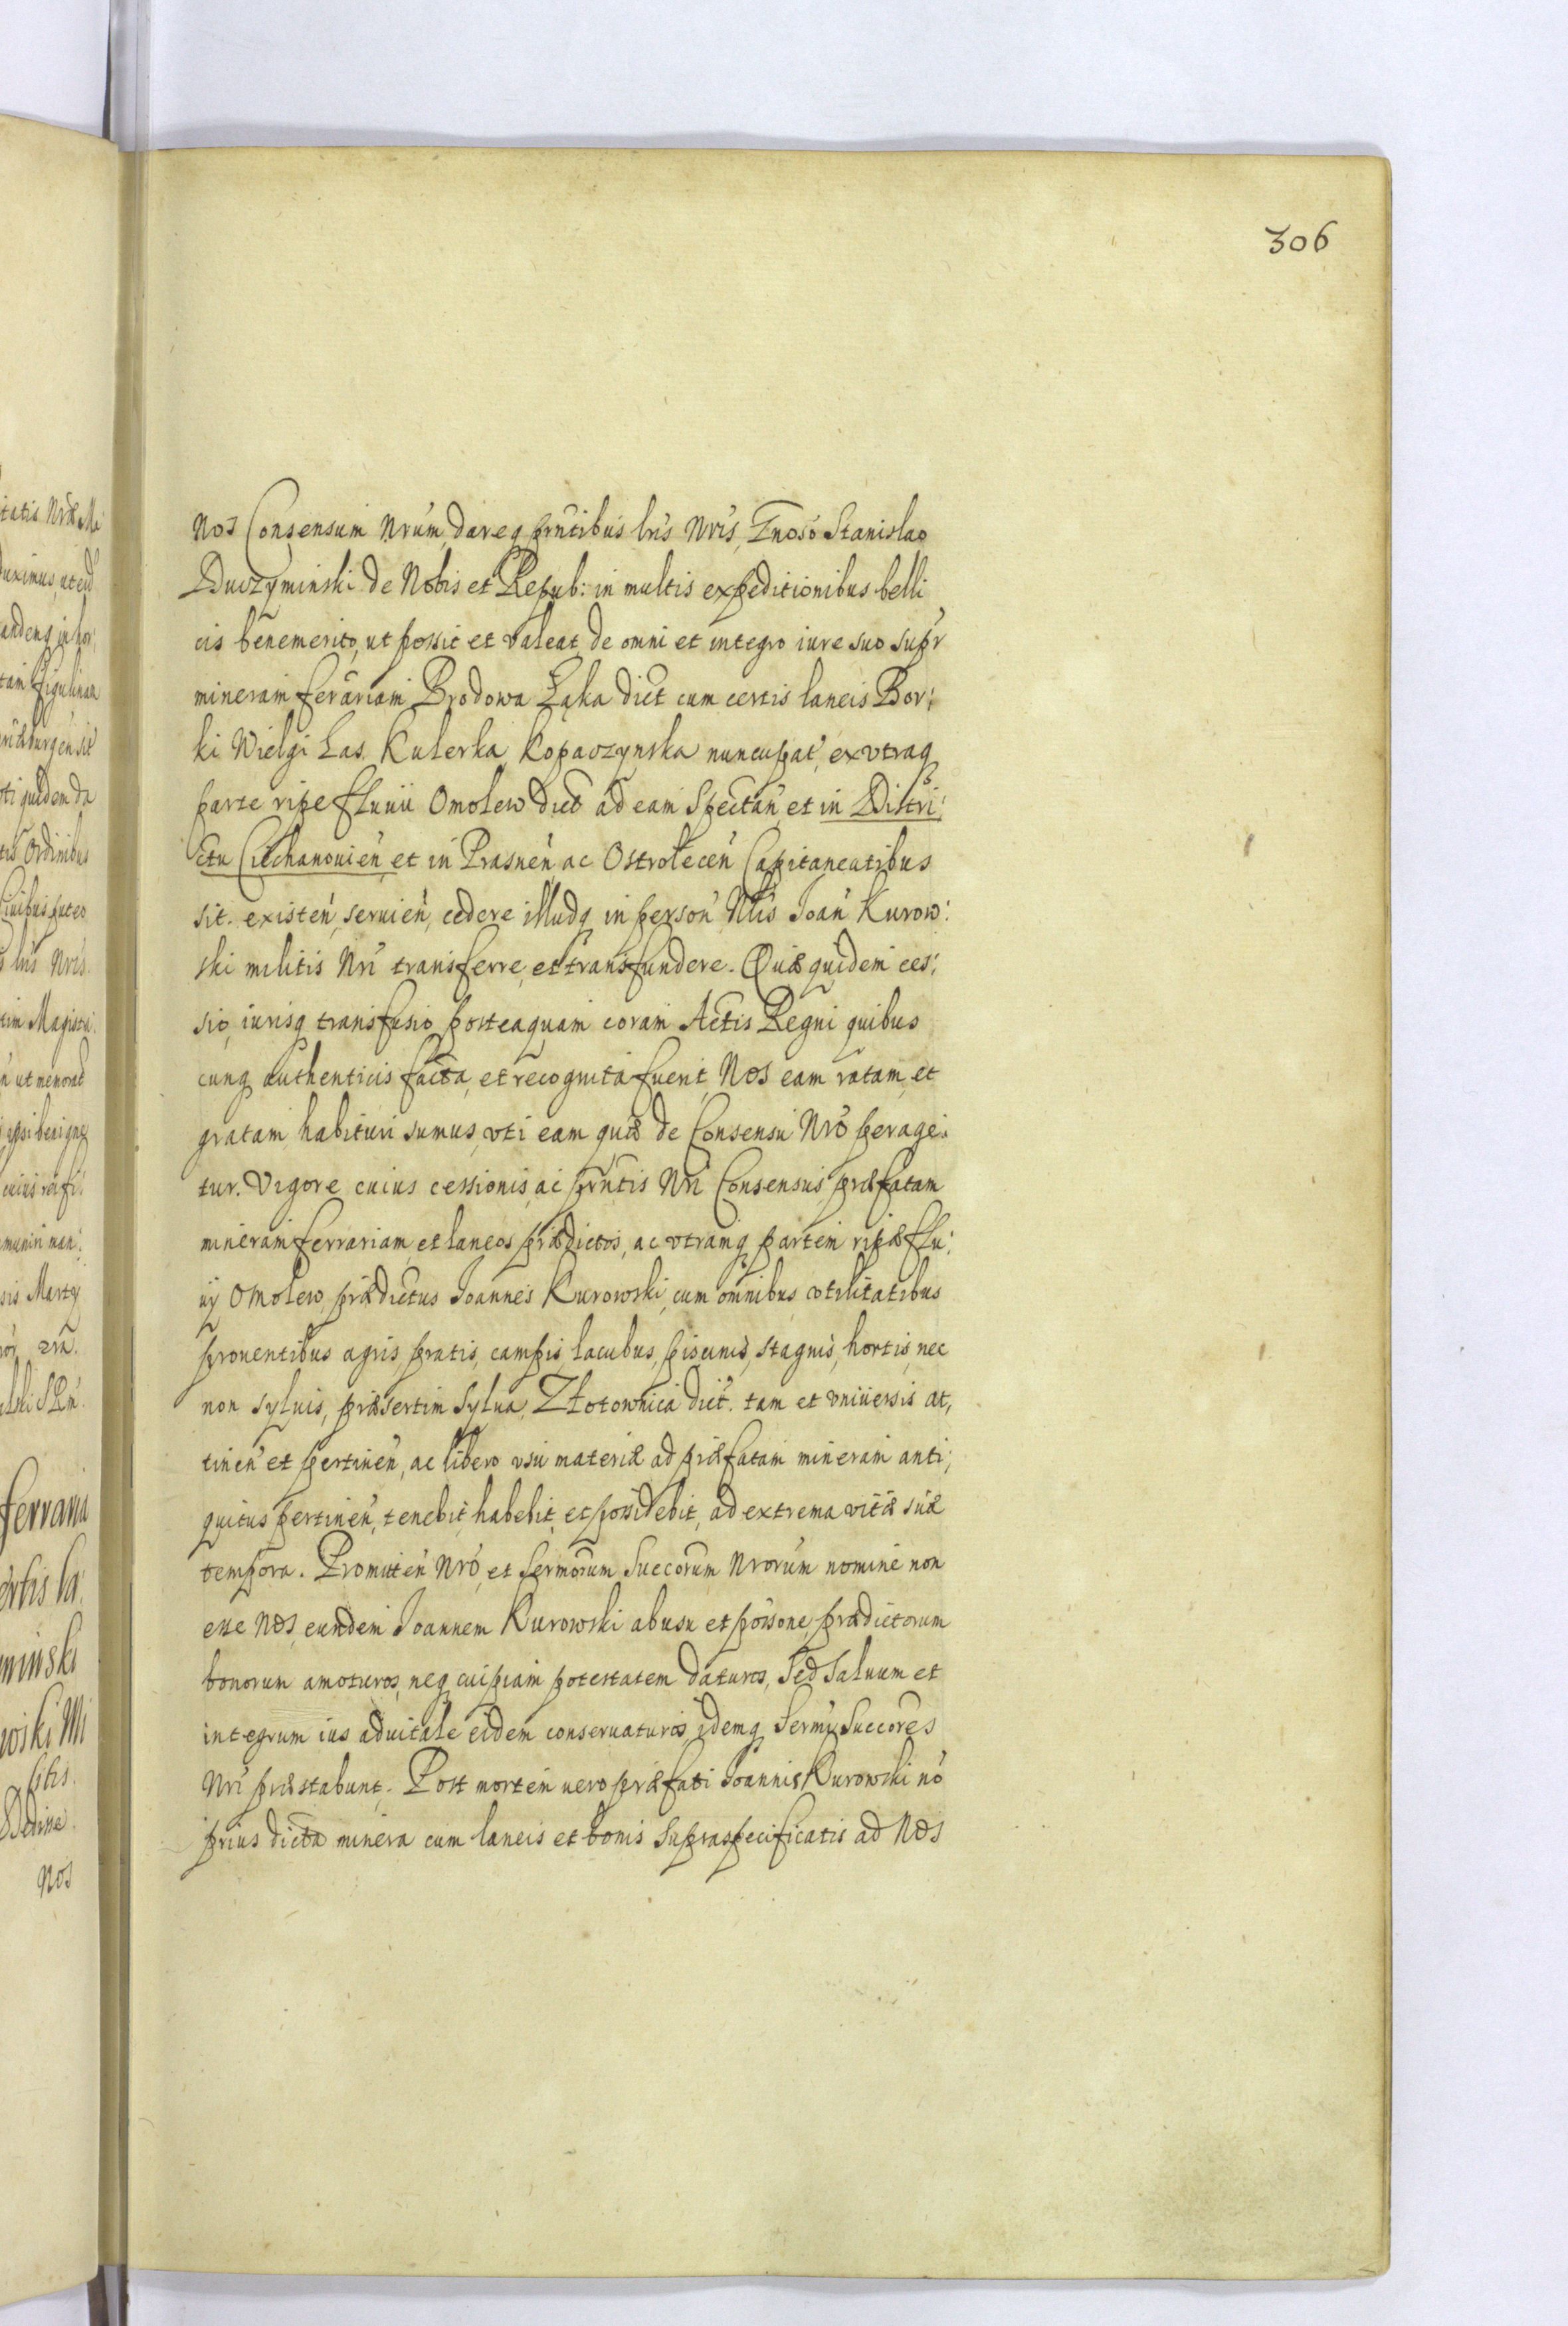 306
Nos Consensum Nrum, dareq prntibus lris Nris, Gnoso Stanislao
Duczyminski de Nobis et Repub: in multis expeditionibus belli
cis benemerito, ut possit et valeat de omni et integro iure suo supr
mineram ferariam Brodowa Łąka dict cum certis laneis Bor:
ki Wielgi Las Kulerka Kopaczynska nuncupat, ex vtraq
parte ripe fluuii Omolew dict ad eam Spectan et in Distri:
ctu Ciechanouien et in Prasnen ac Ostrolecen Capitaneatibus
sit. existen, seruien, cedere illudq in person Nlis Joan Kurow:
ski militis Nri transferre, et transfundere. Quæ quidem ces:
sio, iurisq transfusio posteaquam coram Actis Regni quibus
cunq authenticis facta, et recognita fuerit, Nos eam ratam, et
gratam habituri sumus, vti eam quæ de Consensu Nro perage:
tur. Vigore cuius cessionis, ac prntis Nri Consensus, præfatam
mineram ferrariam, et laneos prædictos, ac vtramq partem ripæ flu:
uy Omolew, prædictus Joannes Kurowski, cum omnibus vtilitatibus
prouentibus agris pratis, campis, lacubus, piscinis, stagnis, hortis, nec
non syluis, præsertim Sylua, Złotownica dict. tam et vniuersis at,
tinen et pertinen, ac libero vsu materiæ ad præfatam mineram anti:
quitus pertinen, tenebit, habebit, et possidebit, ad extrema vitæ suæ
tempora. Promitten Nro, et Sermorum Succorum Nrorum nomine non
esse Nos, eundem Joannem Kurowski ab usu et possone, prædictorum
bonorum amoturos, neq cuipiam potestatem daturos, Sed Saluum et
integrum ius aduitale eidem conseruaturos, idemq Sermi Succores
Nri præstabunt. Post mortem uero præfati Joannis Kurowski no
prius dicta minera cum laneis et bonis Supraspecificatis ad Nos